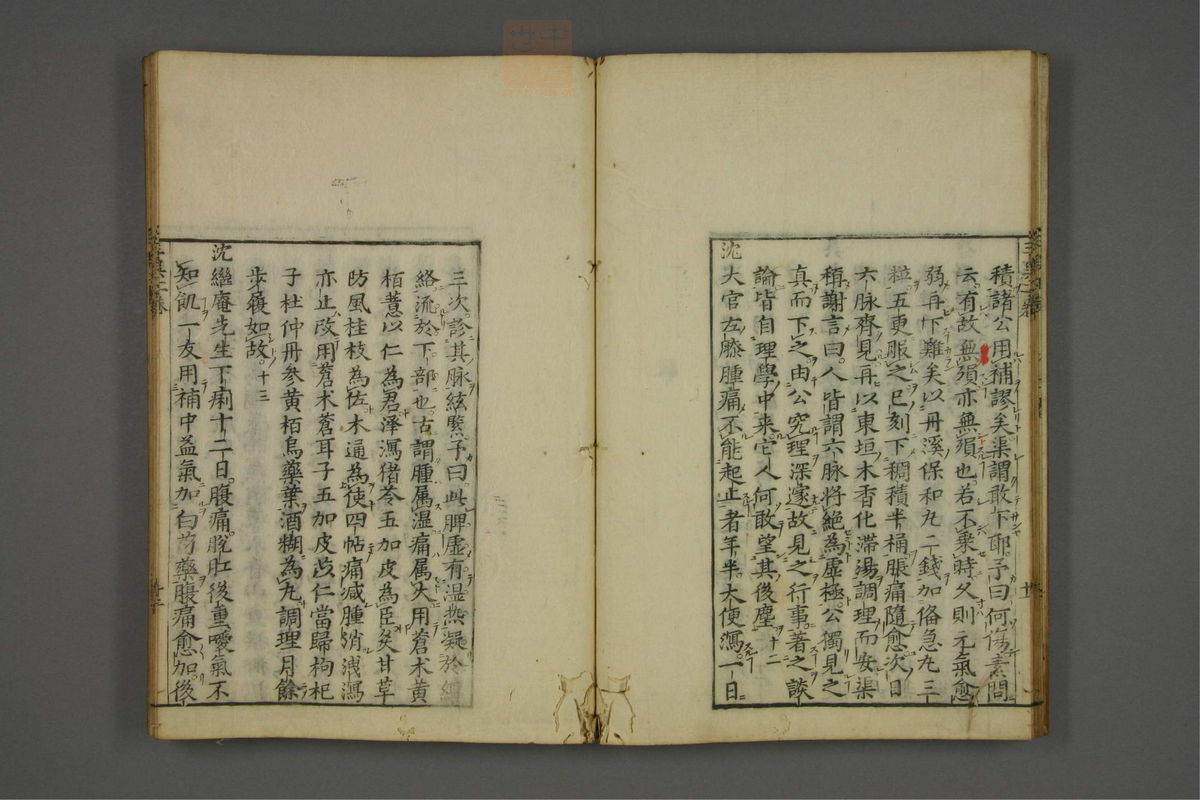 積諸公用補謬矣渠謂敢下耶予曰何傷素問
云有故無殞亦無殞也若不乗時久則元氣愈
弱再下難矣以丹溪保和丸二錢加俻急丸三
粒五更服之巳刻下稠積半桶脹痛隨愈次日
六脉齊見再以東垣木香化滞湯調理而安渠
稱謝言曰人皆謂六脉將絶為虚極公獨見之
真而下之由公究理深邃故見之行事著之談
論皆自理學中来它人何敢望其後塵十二
沈大官左膝腫痛不能起止者年半大便瀉一日
三次診其脉絃緊予曰此脾虚有湿热凝於經
絡流於下部也古謂腫属湿痛属火用蒼术黄
栢薏以仁為君澤瀉猪苓五加皮為臣炙甘草
防風桂枝為佐木通為使四帖痛减腫消溏瀉
亦止改用蒼术蒼耳子五加皮苡仁當歸枸杞
子杜仲丹參黄栢烏藥葉酒糊為丸調理月餘
步履如故十三
沈繼庵先生下痢十二日腹痛脫肛後重噯氣不
知飢一友用補中益氣加白芍藥腹痛愈加後